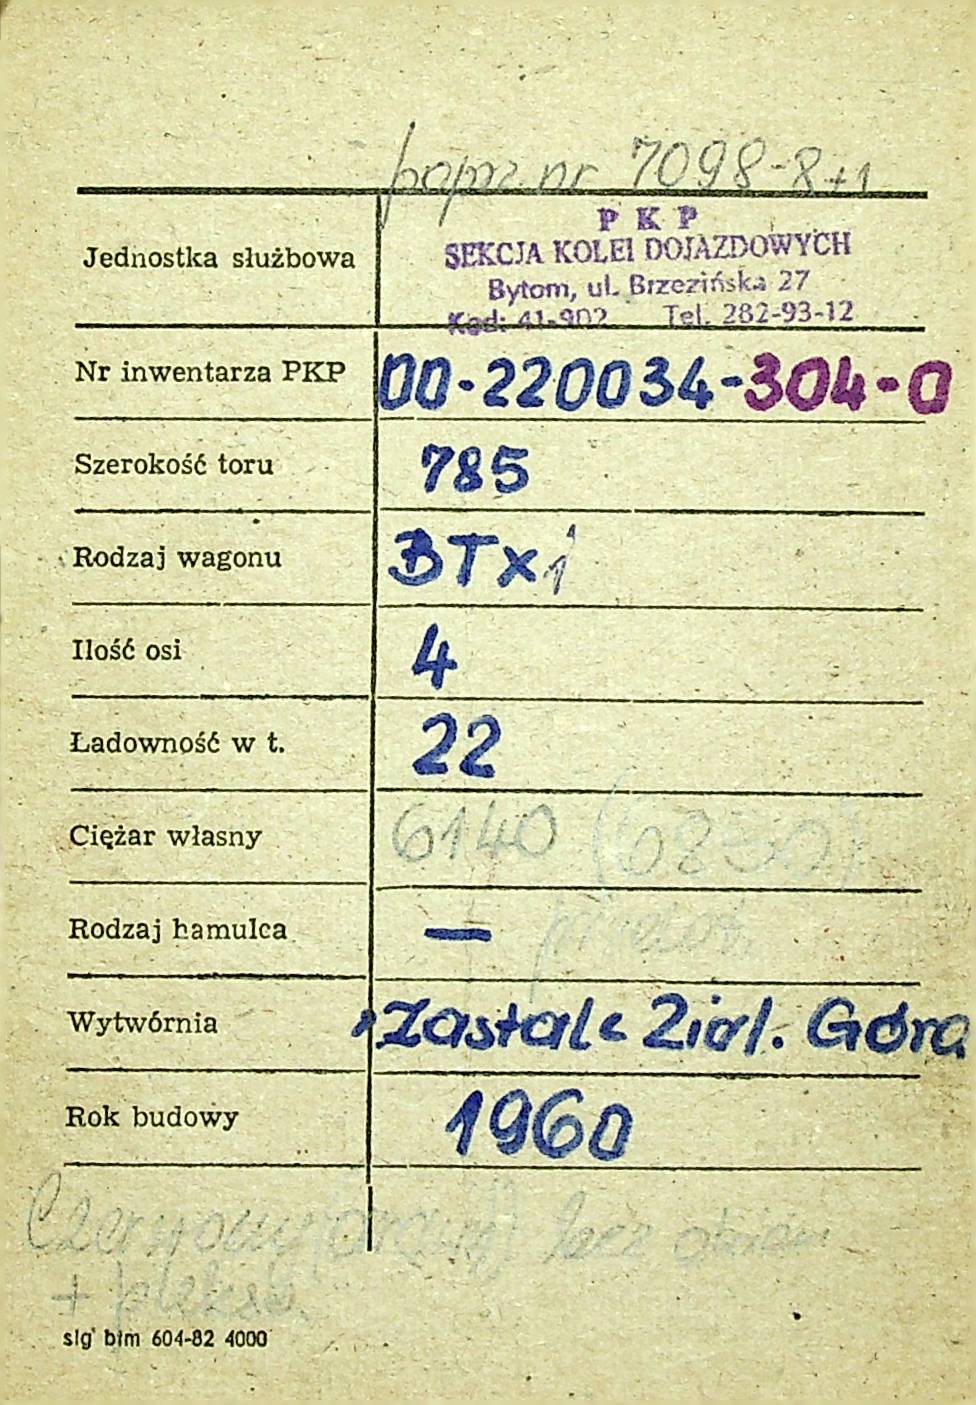 poprz. nr 7098-8+1
P K P
SEKCJA KOLEI DOJAZDOWYCH
Bytom, ul. Brzezińska 27
Kod: 41-902 Tel. 282-93-12
Jednostka służbowa
Nr inwentarza PKP 00-220034-304-0
Szerokość toru 785
Rodzaj wagonu BTxi
Ilość osi 4
Ładowność w t. 22
Ciężar własny 6140 (6850)
Rodzaj hamulca —
Wytwórnia "Zastal" Ziel. Góra
Rok budowy 1960
lecz
+
slg btm 604-82 4000